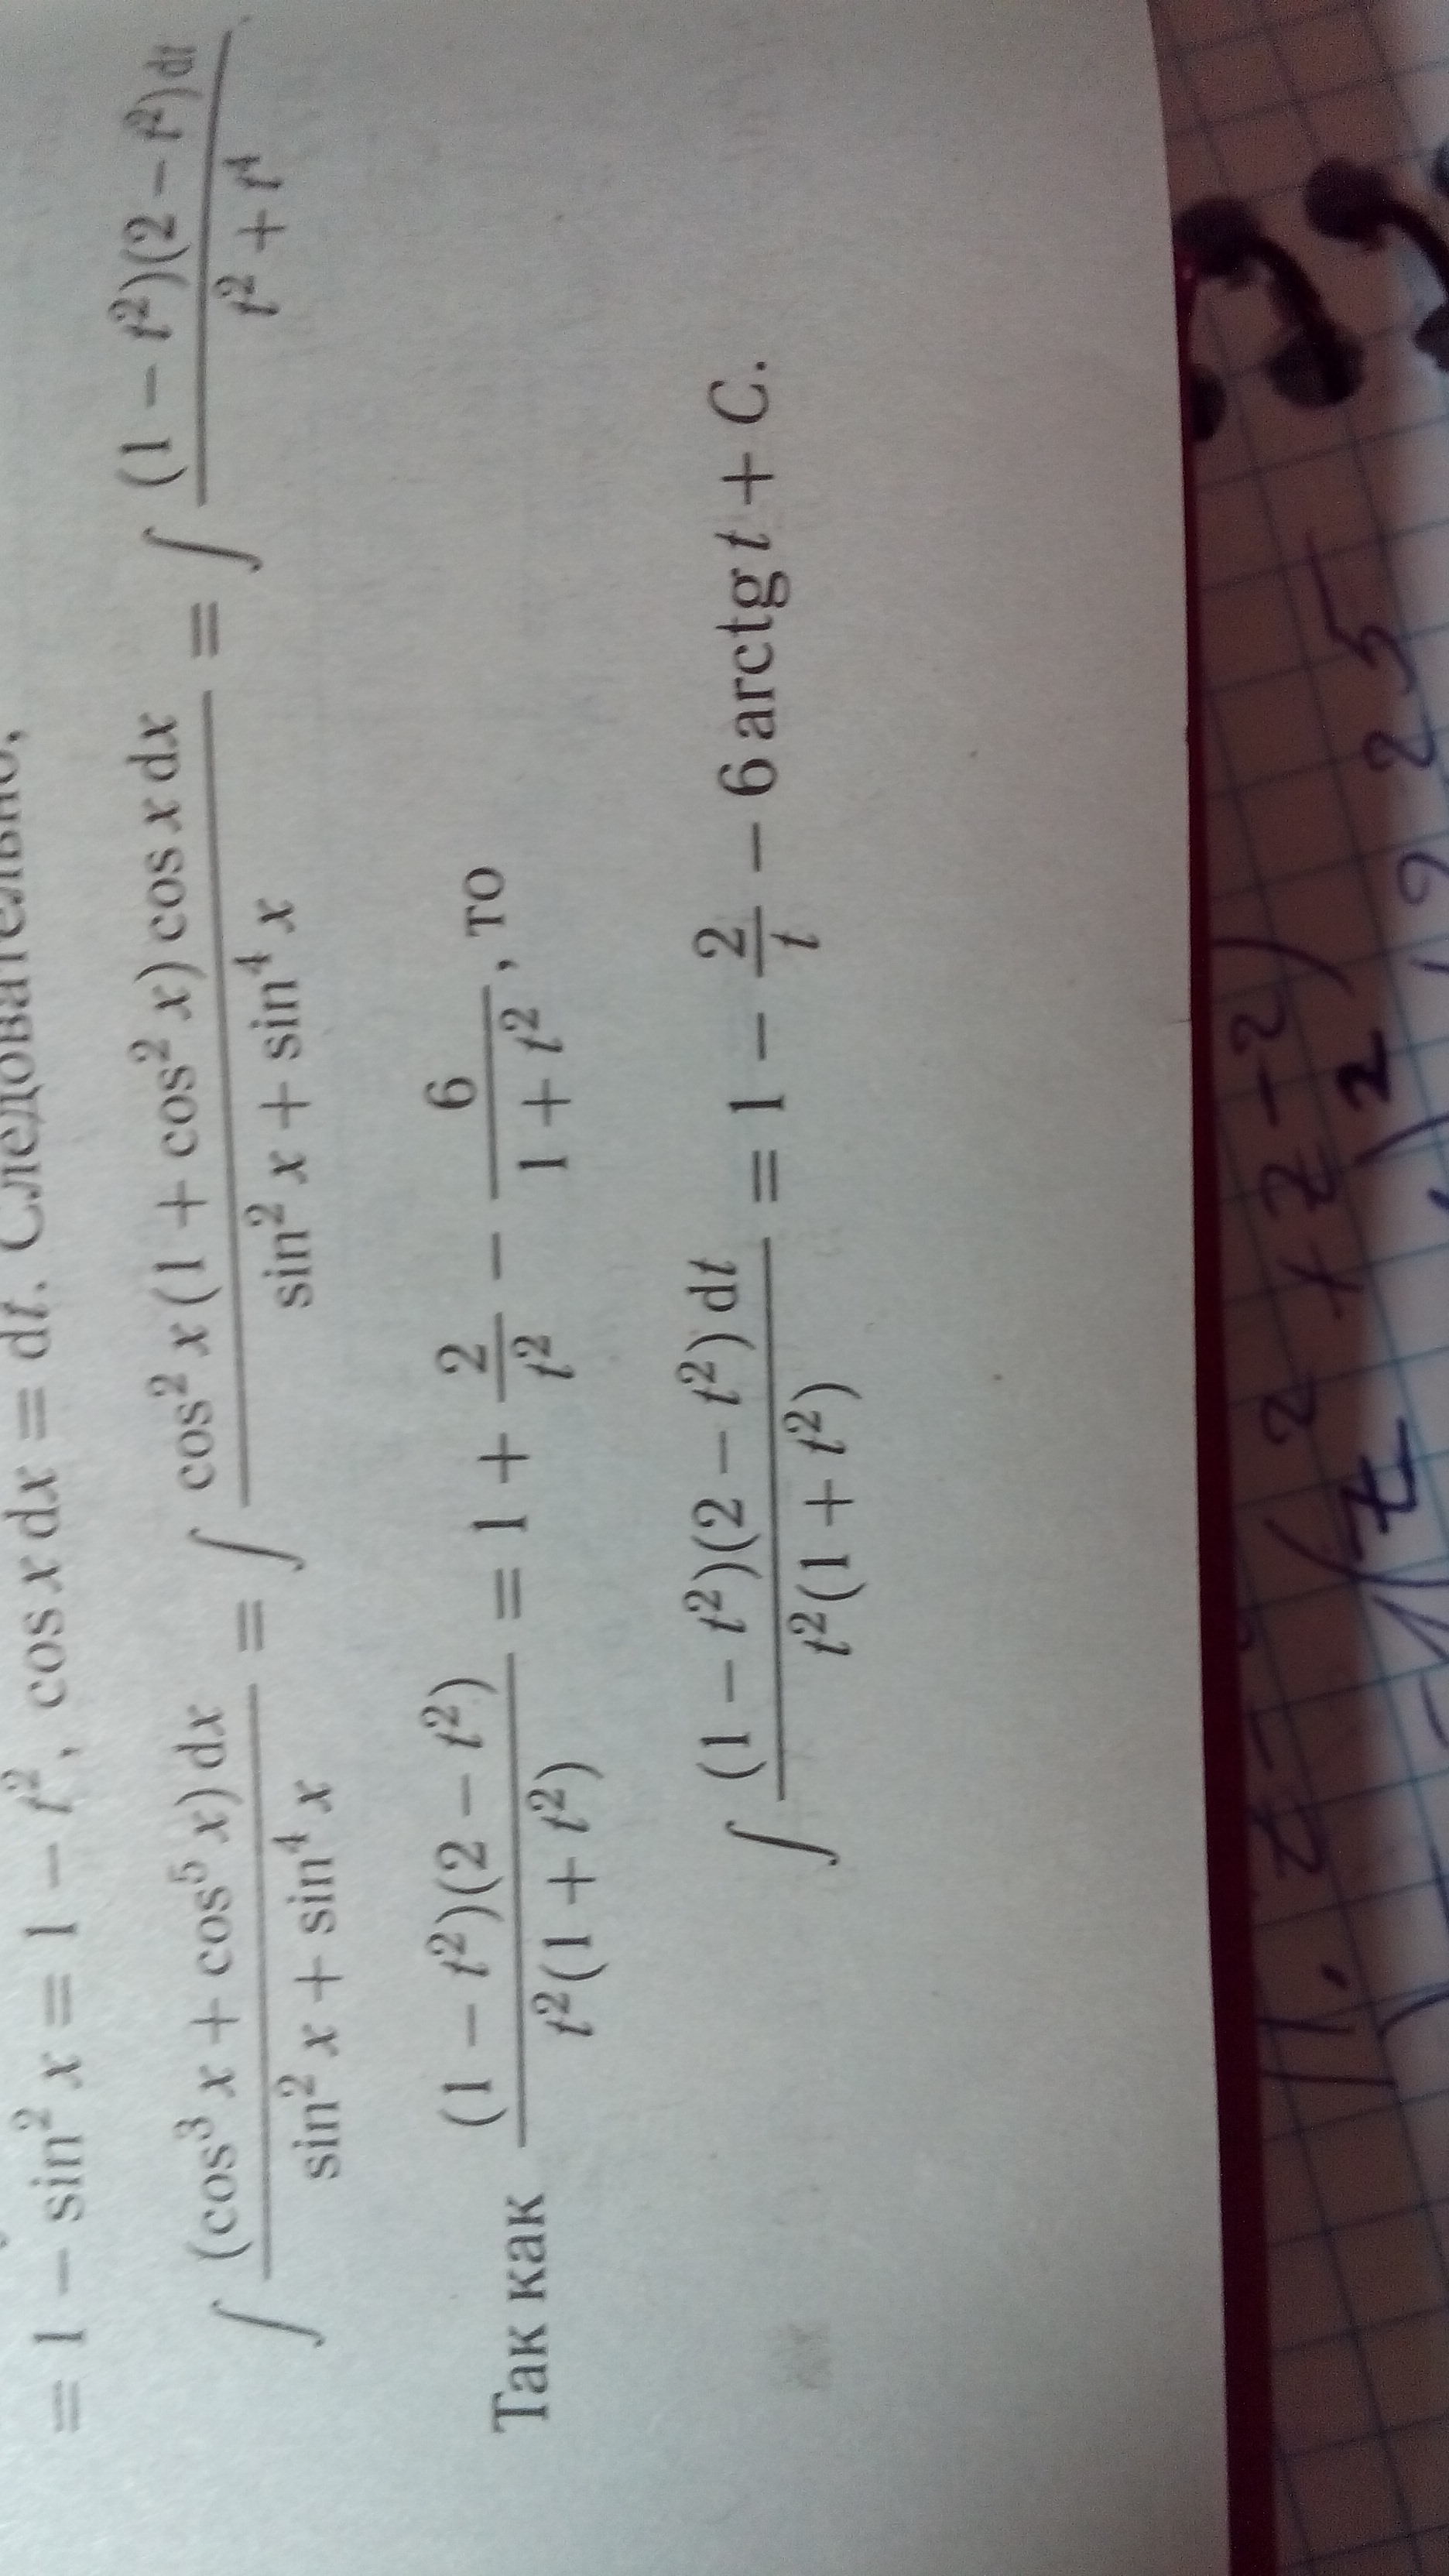 = 1 − sin² x = 1 − t², cos x dx = dt. Следовательно,
∫ (cos³ x + cos⁵ x) dx / (sin² x + sin⁴ x) = ∫ cos² x (1 + cos² x) cos x dx / (sin² x + sin⁴ x) = ∫ (1 − t²)(2 − t²) dt / (t² + t⁴)
Так как (1 − t²)(2 − t²) / (t²(1 + t²)) = 1 + 2/t² − 6/(1 + t²), то
∫ (1 − t²)(2 − t²) dt / (t²(1 + t²)) = 1 − 2/t − 6 arctg t + C.